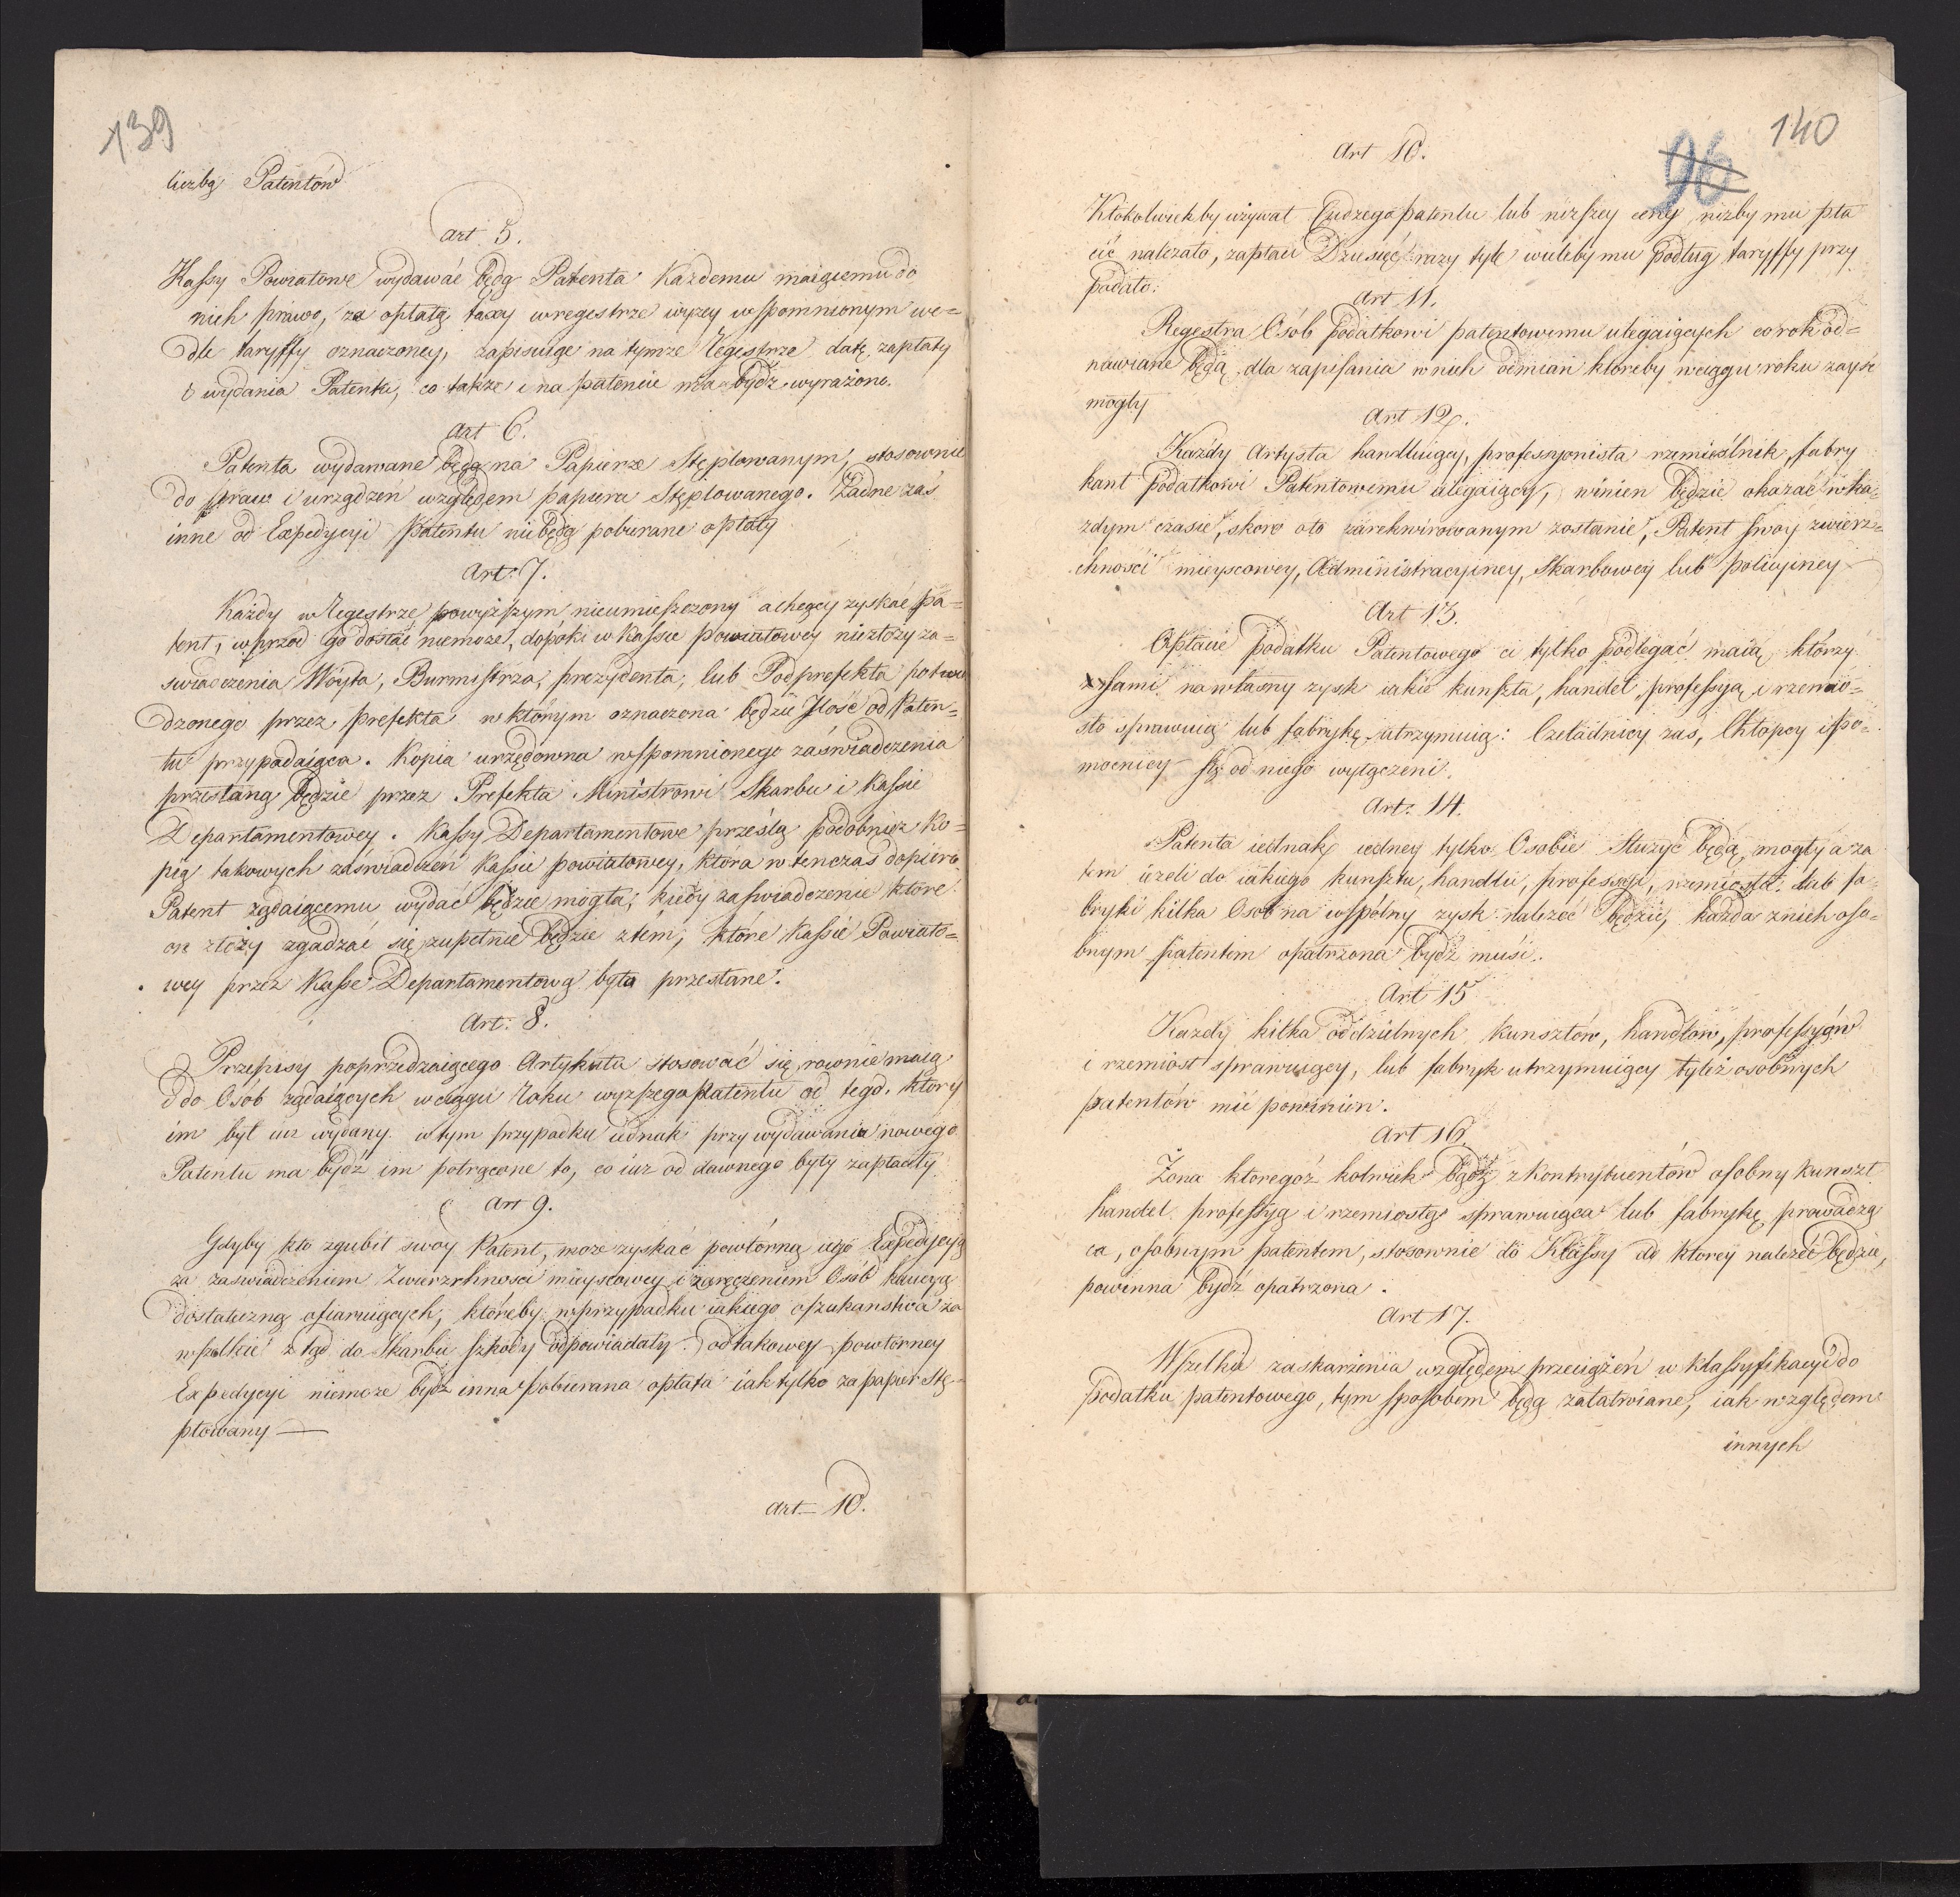 139
liczbą Patentów
Art. 5.
Kassy Powiatowe wydawać będą Patenta każdemu maiącemu do
nich prawo, za opłatą taxy w regestrze wyzey wspomnionym we=
dle taryffy oznaczoney, zapisuiąc na tymze Regestrze datę zapłaty
i wydania Patentu, co także i na patencie ma bydź wyrażono.
Art 6.
Patenta wydawane będą na Papierze Stęplowanym, stosownie
do praw i urządzeń względem papieru Stęplowanego. Zadne zaś
inne od Expedycyi Patentu niebędą pobierane opłaty
Art: 7.
Każdy w Regestrze powyższym nieumieszczony a chcący zyskać Pa=
tent, wprzod go dostać niemoże, dopóki w Kassie powiatowey niezłoży za=
swiadczenia Wóyta, Burmistrza, prezydenta, lub Podprefekta potwier
dzonego przez prefekta w którym oznaczona będzie Ilość od Paten=
tu przypadaiąca. Kopia urzędowna wspomnionego zaświadczenia
przesłaną będzie przez Prefekta Ministrowi Skarbu i Kassie
Departamentowey. Kassy Departamentowe prześlą podobnież Ko=
pią takowych zaświadczeń Kassie powiatowey, która w tenczas dopiero
Patent żądaiącemu wydać będzie mogła, kiedy zaswiadczenie które
on złoży zgadzać się zupełnie będzie z tém, które Kassie Powiato=
wey przez Kasse Departamentową było przesłane.
Art: 8.
Przepisy poprzedzaiącego Artykułu stosować się równie maią
do Osób żądaiących w ciągu Roku wyzszego patentu od tego, który
im był iuz wydany. w tym przypadku iednak przy wydawaniu nowego
Patentu ma bydź im potrącone to, co iuz od dawnego były zapłaciły
Art 9.
Gdyby kto zgubił swoy Patent, moze zyskać powtórną iego Expedycyą
za zaswiadczeniem Zwierzchnosci mieyscowey i zaręczeniem Osób kaucyą
dostateczną ofiaruiących, któreby w przypadku iakiego oszukanstwa za
wszelkie z tąd do Skarbu szkody odpowiadały. od takowey powtórney
Expedycyi niemoze bydz inna pobierana opłata iak tylko za papier Stę=
plowany —
Art— 10.
140
96
Art 10.
Ktokolwiekby używał Cudzego patentu lub niższey ceny niżby mu pła
cić należało, zapłaci Dziesięć razy tyle wieleby mu podług taryffy przy
padało.
Art 11.
Regestra Osób podatkowi patentowemu ulegaiących co rok od=
nawiane będą, dla zapisania w nich odmian któreby w ciągu roku zayść
mogły
Art 12.
Każdy Artysta handluiący, professyonista rzemieślnik, fabry
kant podatkowi Patentowemu ulegaiący, winien będzie okazać w ka=
zdym czasie, skoro o to zarekwirowanym zostanie, Patent swoy zwierz=
chności mieyscowey, Administracyiney, Skarbowey lub policyiney
Art 13.
Opłacie podatku Patentowego ci tylko podlegać maią, którzy
sami na własny zysk iakie kunszta, handel, professyą, i rzemio=
sło sprawuią lub fabrykę utrzymuią: Czeladnicy zaś, Chłopcy i po=
mocnicy są od niego wyłączeni.
Art: 14.
Patenta iednak iedney tylko Osobie służyć będą, mogły a za
tem iżeli do iakiego kunsztu, handlu, professyi, rzemiosła, lub fa=
bryki kilka Osob na wspólny zysk należeć będzie, każda z nich oso=
bnym patentem opatrzona bydź musi.
Art 15
Kazdy kilka oddzielnych kunsztów, handlów, professyów
i rzemiosł sprawuiący, lub fabryk utrzymuiący tyleż osobnych
patentów mieć powinien.
Art 16.
Żona któregoż kolwiek bądź z kontrybuentów osobny kunszt
handel professyą i rzemiosło sprawuiąca lub fabrykę prowadzą
ca, osobnym patentem, stosownie do Klassy do ktorey należeć będzie,
powinna bydź opatrzona.
Art 17.
Wszelkie zaskarżenia względem przeciążeń w klassyfikacyi do
podatku patentowego, tym sposobem będą załatwiane, iak względem
innych